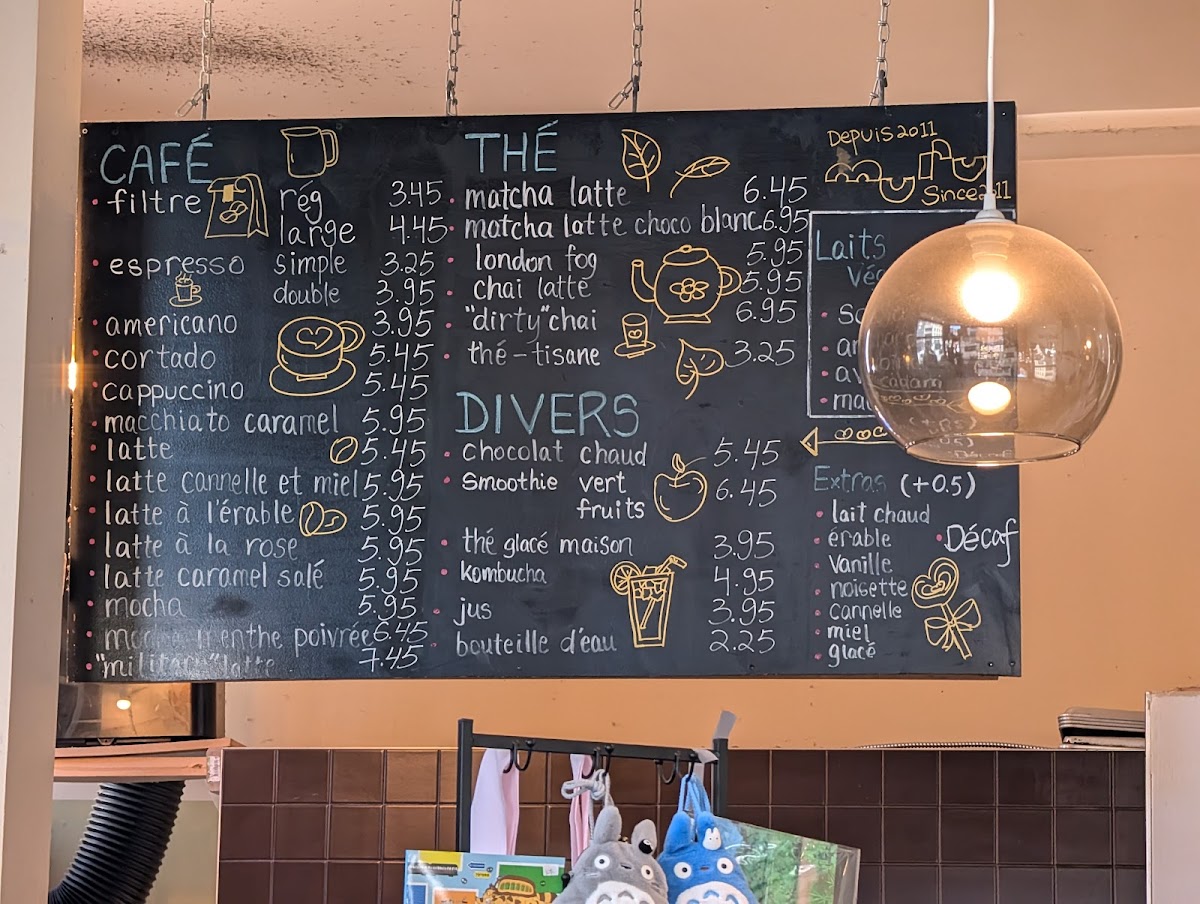 CAFÉ
filtre rég 3.45
large 4.45
espresso simple 3.25
double 3.95
americano 3.95
cortado 5.45
cappuccino 5.45
macchiato caramel 5.95
latte 5.45
latte cannelle et miel 5.95
latte à l'érable 5.95
latte à la rose 5.95
latte caramel salé 5.95
mocha 5.95
menthe poivrée 6.45
"military" latte 7.45
THÉ
matcha latte 6.45
matcha latte choco blanc 6.95
london fog 5.95
chai latte 5.95
"dirty" chai 6.95
thé-tisane 3.25
DIVERS
chocolat chaud 5.45
smoothie vert 6.45
fruits
thé glacé maison 3.95
kombucha 4.95
jus 3.95
bouteille d'eau 2.25
Depuis 2011
Since 2011
Laits
Extras (+0.5)
lait chaud
érable
Décaf
vanille
noisette
cannelle
miel
glacé